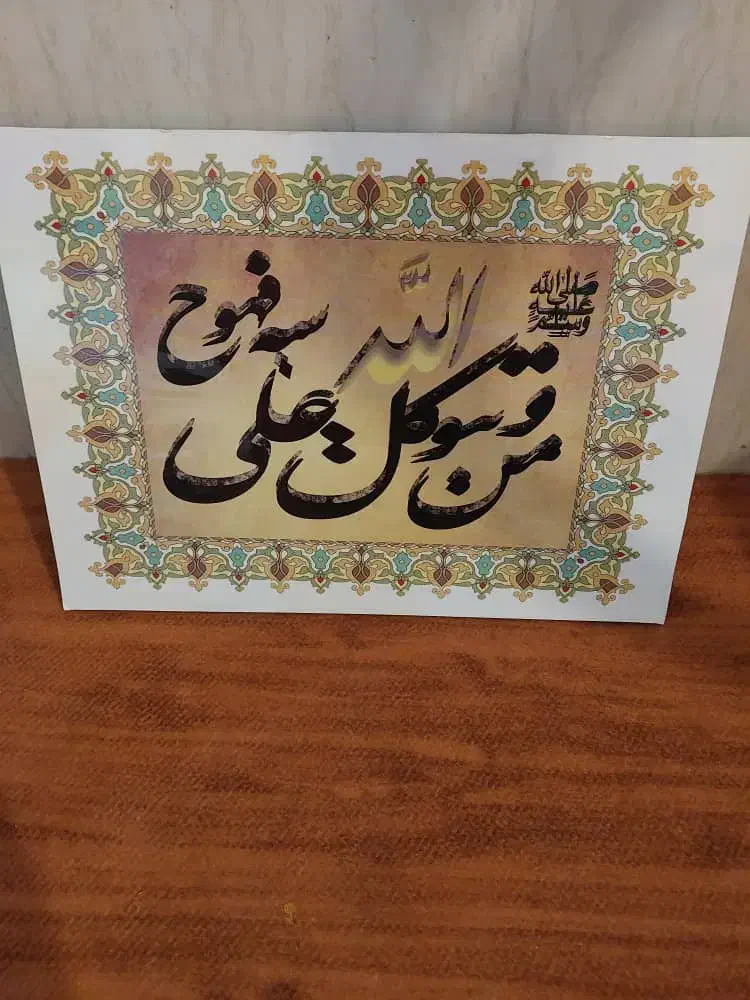 صلى الله عليه وسلم
ومن يتوكل على الله فهو حسبه